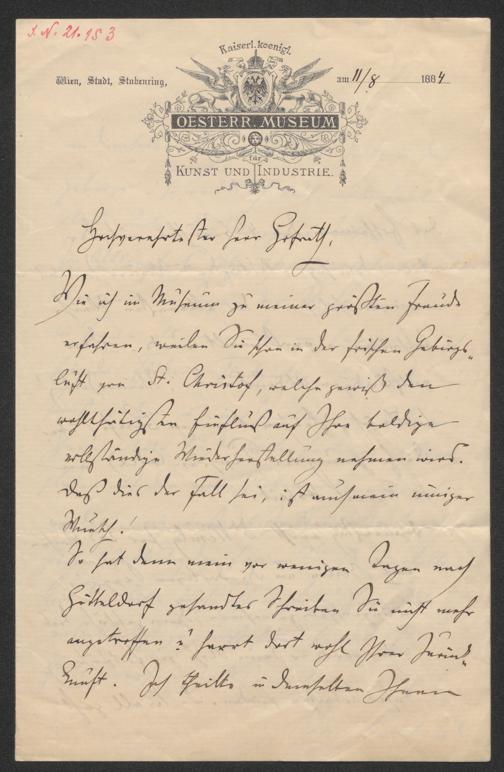 I. N. 21.953
Kaiserl. koenigl.
Wien, Stadt, Stubenring,
am 11/8 1884
OESTERR. MUSEUM
für
KUNST UND INDUSTRIE.
Hochverehrtester Herr Hofrath,
Wie ich im Museum zu meiner größten Freude
erfahren, weilen Sie schon in der frischen Gebirgs-
luft von St. Christof, welche gewiß den
wohlthätigsten Einfluß auf Ihre baldige
vollständige Wiederherstellung nehmen wird.
Daß dies der Fall sei, ist auch mein inniger
Wunsch!
So hat denn mein vor wenigen Tagen nach
Hütteldorf gesandtes Schreiben Sie nicht mehr
angetroffen u. harrt dort wohl Ihrer Zurück-
kunft. Ich theilte in demselben Ihnen